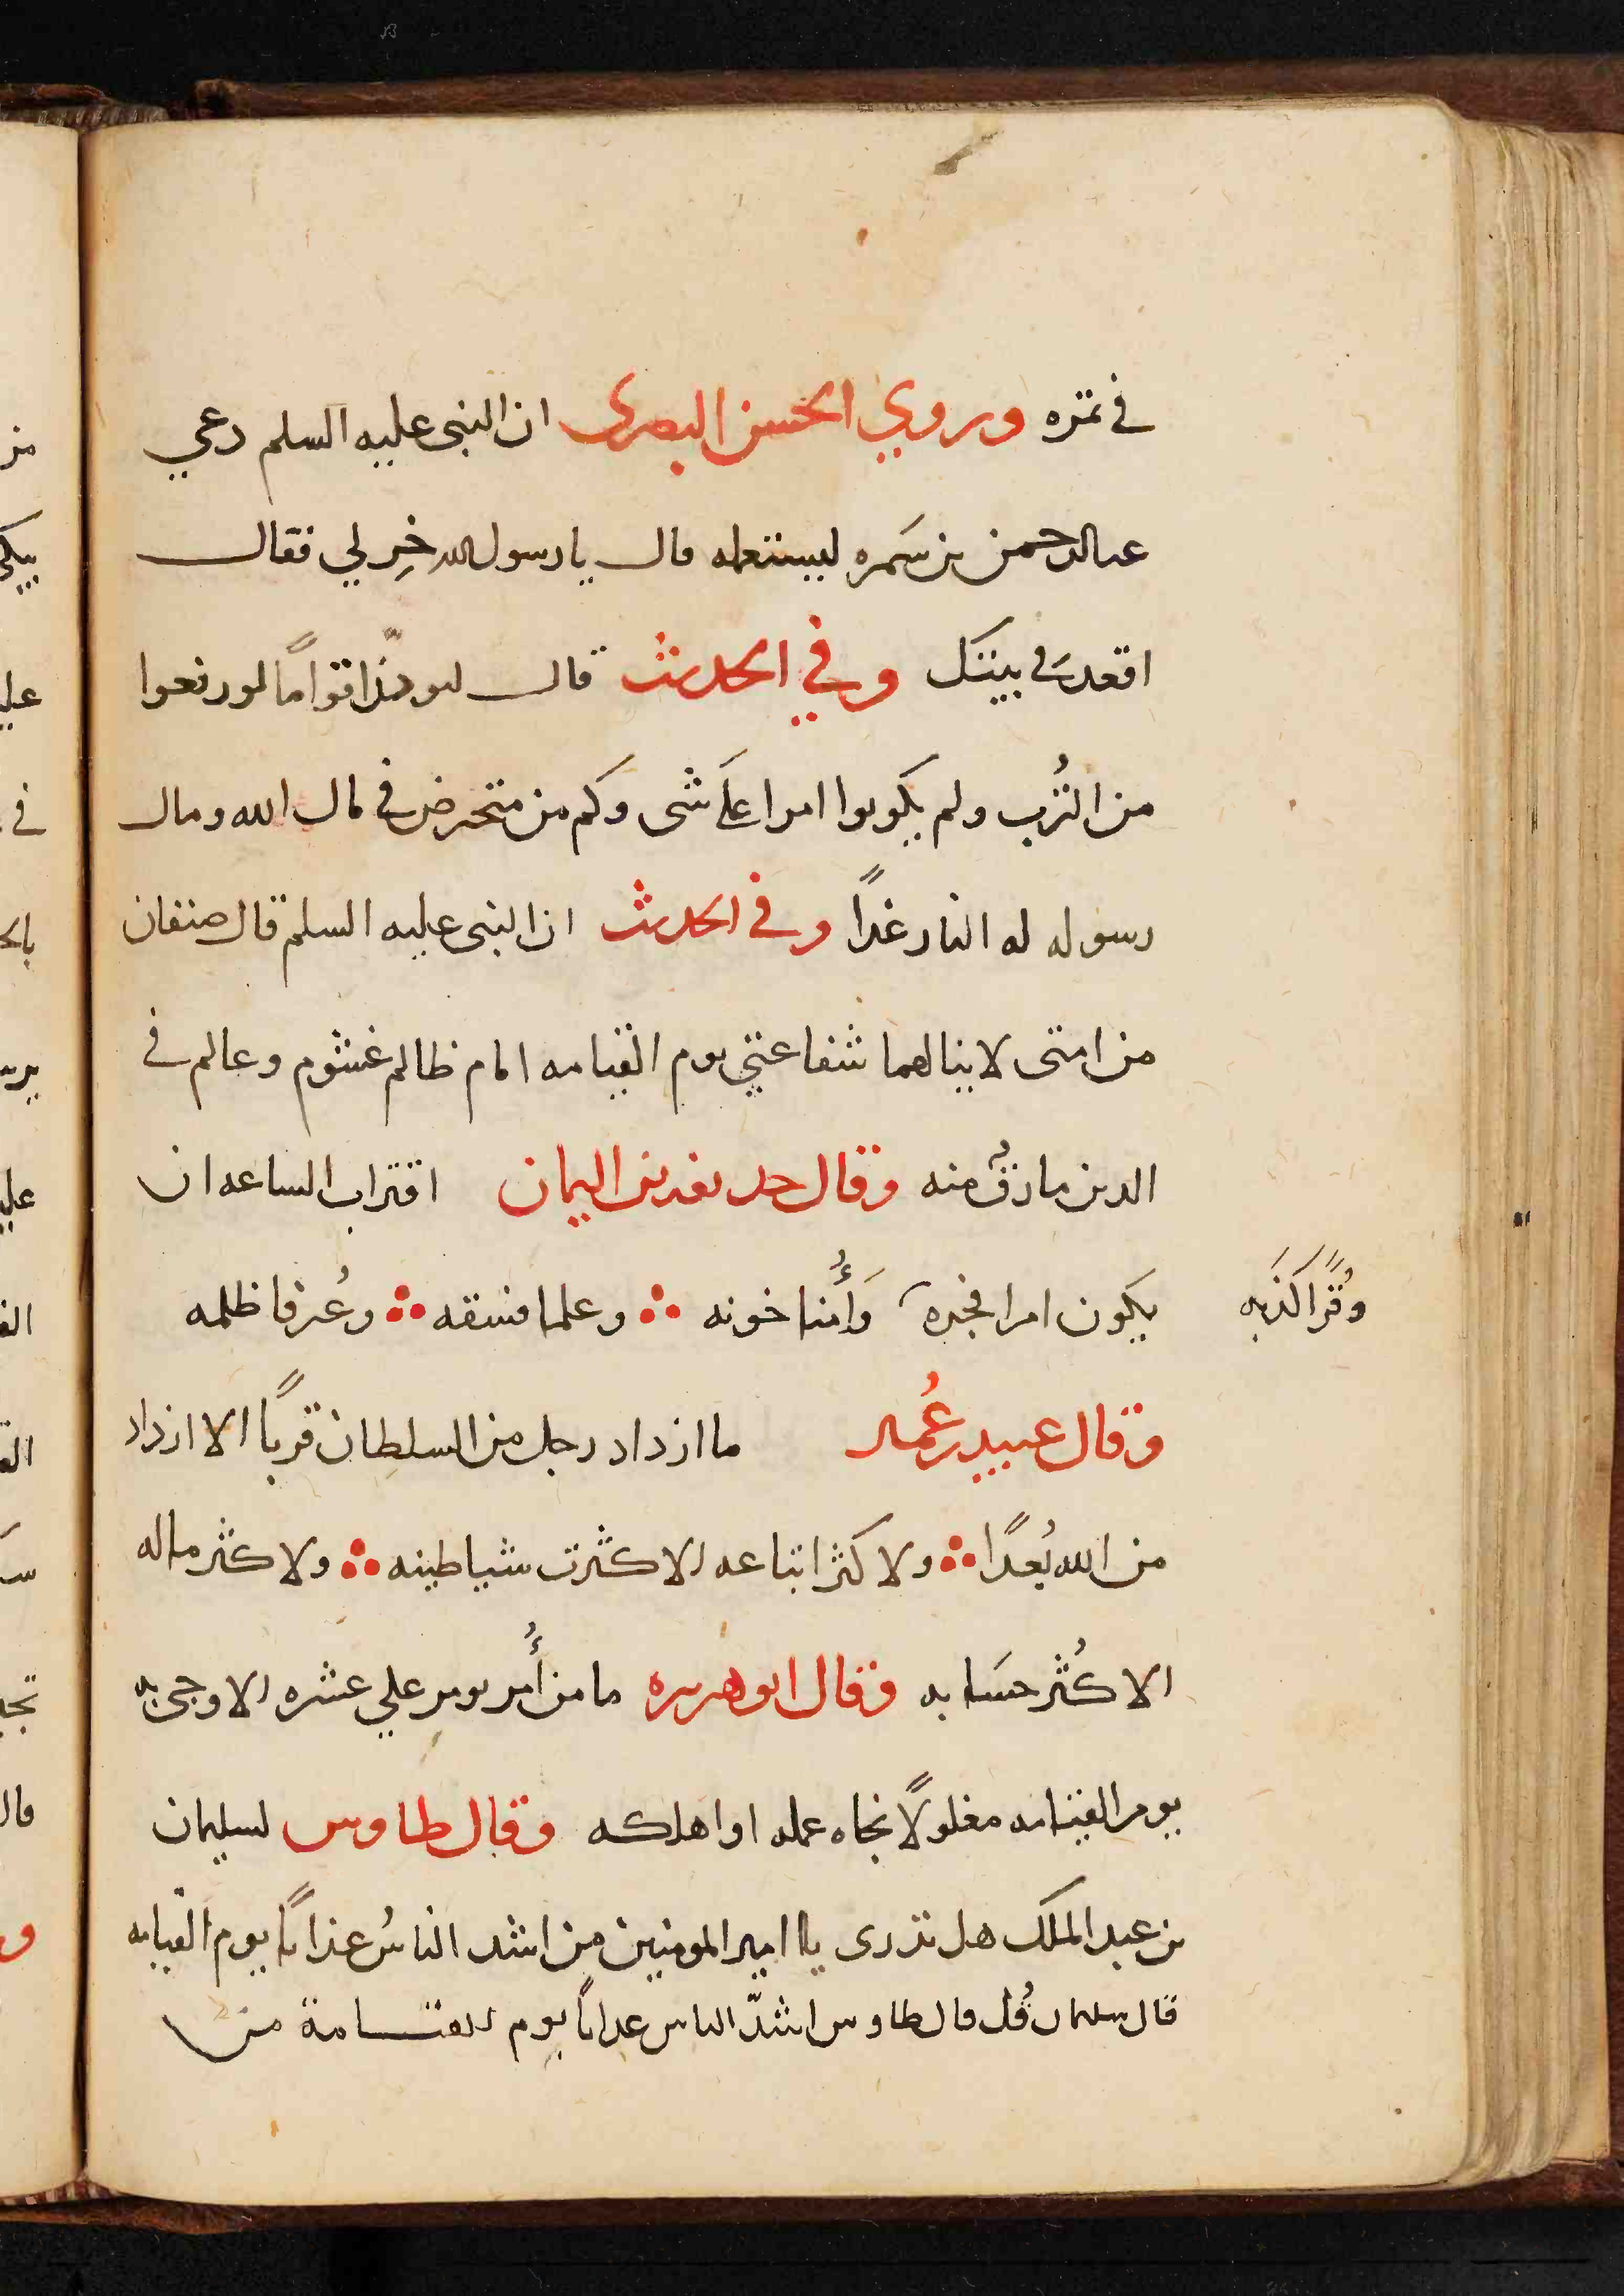 في تمره وروي الحسن البصرى ان النبى عليه السلم دعي
عبدالرحمن بن سَمره ليستعمله قال يا رسول الله خِر لي فقال
اقعد في بيتك وفي الحديث قال ليودّنّ اقوامًا لو رفعوا
من الثُرب ولم يكونوا امرا علَى شى وكم من متخوض في مال الله ومال
رسوله له النار غدًا وفي الحديث ان النبى عليه السلم قال صنفان
من امتى لا ينالهما شفاعتي يوم القيامه امام ظالم غشوم وعالم في
الدين مارقٌ منه وقال حديفه بن اليمان اقتراب الساعه ان
يكون امرا فجرة وَأُمنا خونه ∴ وعلما فسقه ∴ وعُرفا ظلمه
وقُرّا كذبه
وقال عبيد بن عُمير ما ازداد رجل من السلطان قربًا الا ازداد
من الله بُعدًا ∴ ولا كثر اتباعه الا كثرت شياطينه ∴ ولا كثر ماله
الا كُثر حسَابه وقال ابو هريره ما من أُمر يومر علي عشره الا وجى به
يوم القيامه مغلولًا نجاه عمله او اهلكه وقال طاوس لسليمان
بن عبد الملك هل تدرى يا امير المومنين من اشد الناسُ عذابًا يوم القيامه
قال سليمان قُل قال طاوس اشدّ الناس عذابًا يوم القيامة من